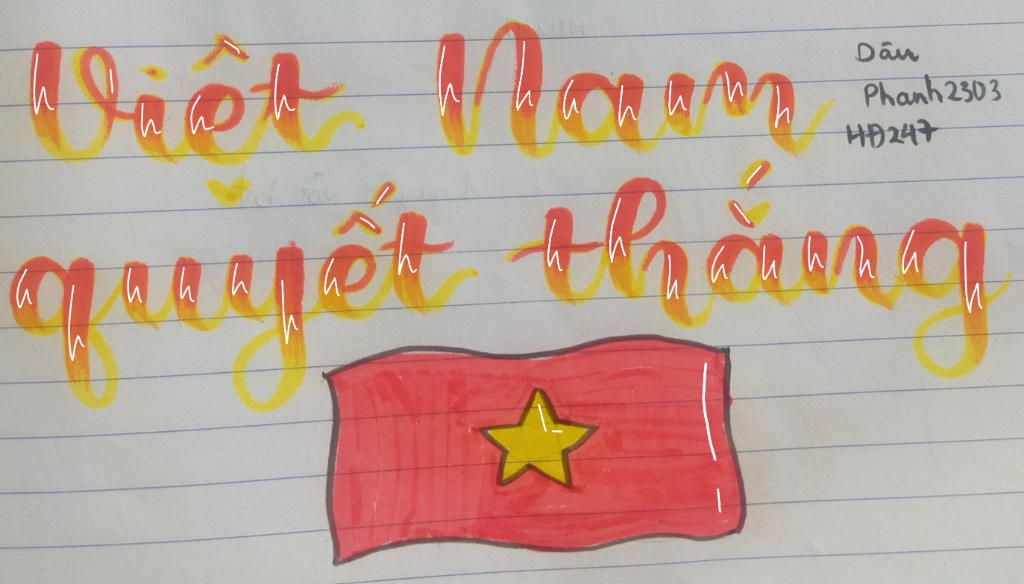 Việt Nam
quyết thắng
Dấu
Phanh2303
HĐ247